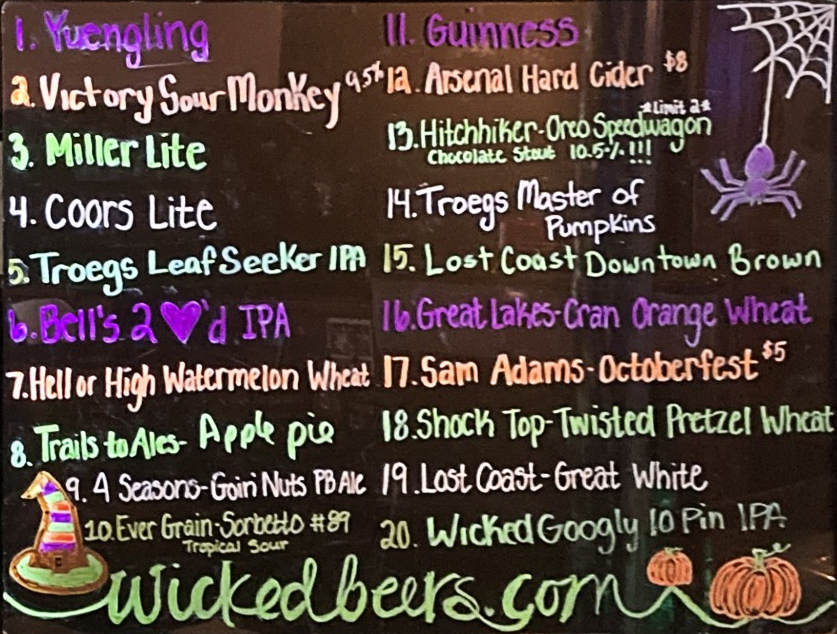 1. Yuengling
2. Victory Sour Monkey 9.5%
3. Miller Lite
4. Coors Lite
5. Troegs Leaf Seeker IPA
6. Bell's 2 ♥'d IPA
7. Hell or High Watermelon Wheat
8. Trails to Ales - Apple pie
9. 4 Seasons - Goin' Nuts PB Ale
10. Ever Grain - Sorbetto #89
Tropical Sour
11. Guinness
12. Arsenal Hard Cider $8
*Limit 2*
13. Hitchhiker - Oreo Speedwagon
Chocolate Stout 10.5% !!!
14. Troegs Master of
Pumpkins
15. Lost Coast Downtown Brown
16. Great Lakes - Cran Orange Wheat
17. Sam Adams - Octoberfest $5
18. Shock Top - Twisted Pretzel Wheat
19. Lost Coast - Great White
20. Wicked Googly 10 Pin IPA
wickedbeers.com